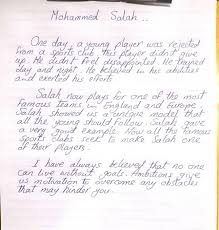 Mohammed Salah..
One day, a young player was rejected
from a sports club. This player didn't give
up. He didn't feel disappointed. He trained
day and night. He believed in his abilities
and exerted his effort.
Salah now plays for one of the most
famous teams in England and Europe.
Salah showed us a unique model that
all the young should follow. Salah gave
a very good example. Now all the famous
sports clubs seek to make Salah one
of their players.
I have always believed that no one
can live without goals. Ambitions give
us motivation to overcome any obstacles
that may hinder you.